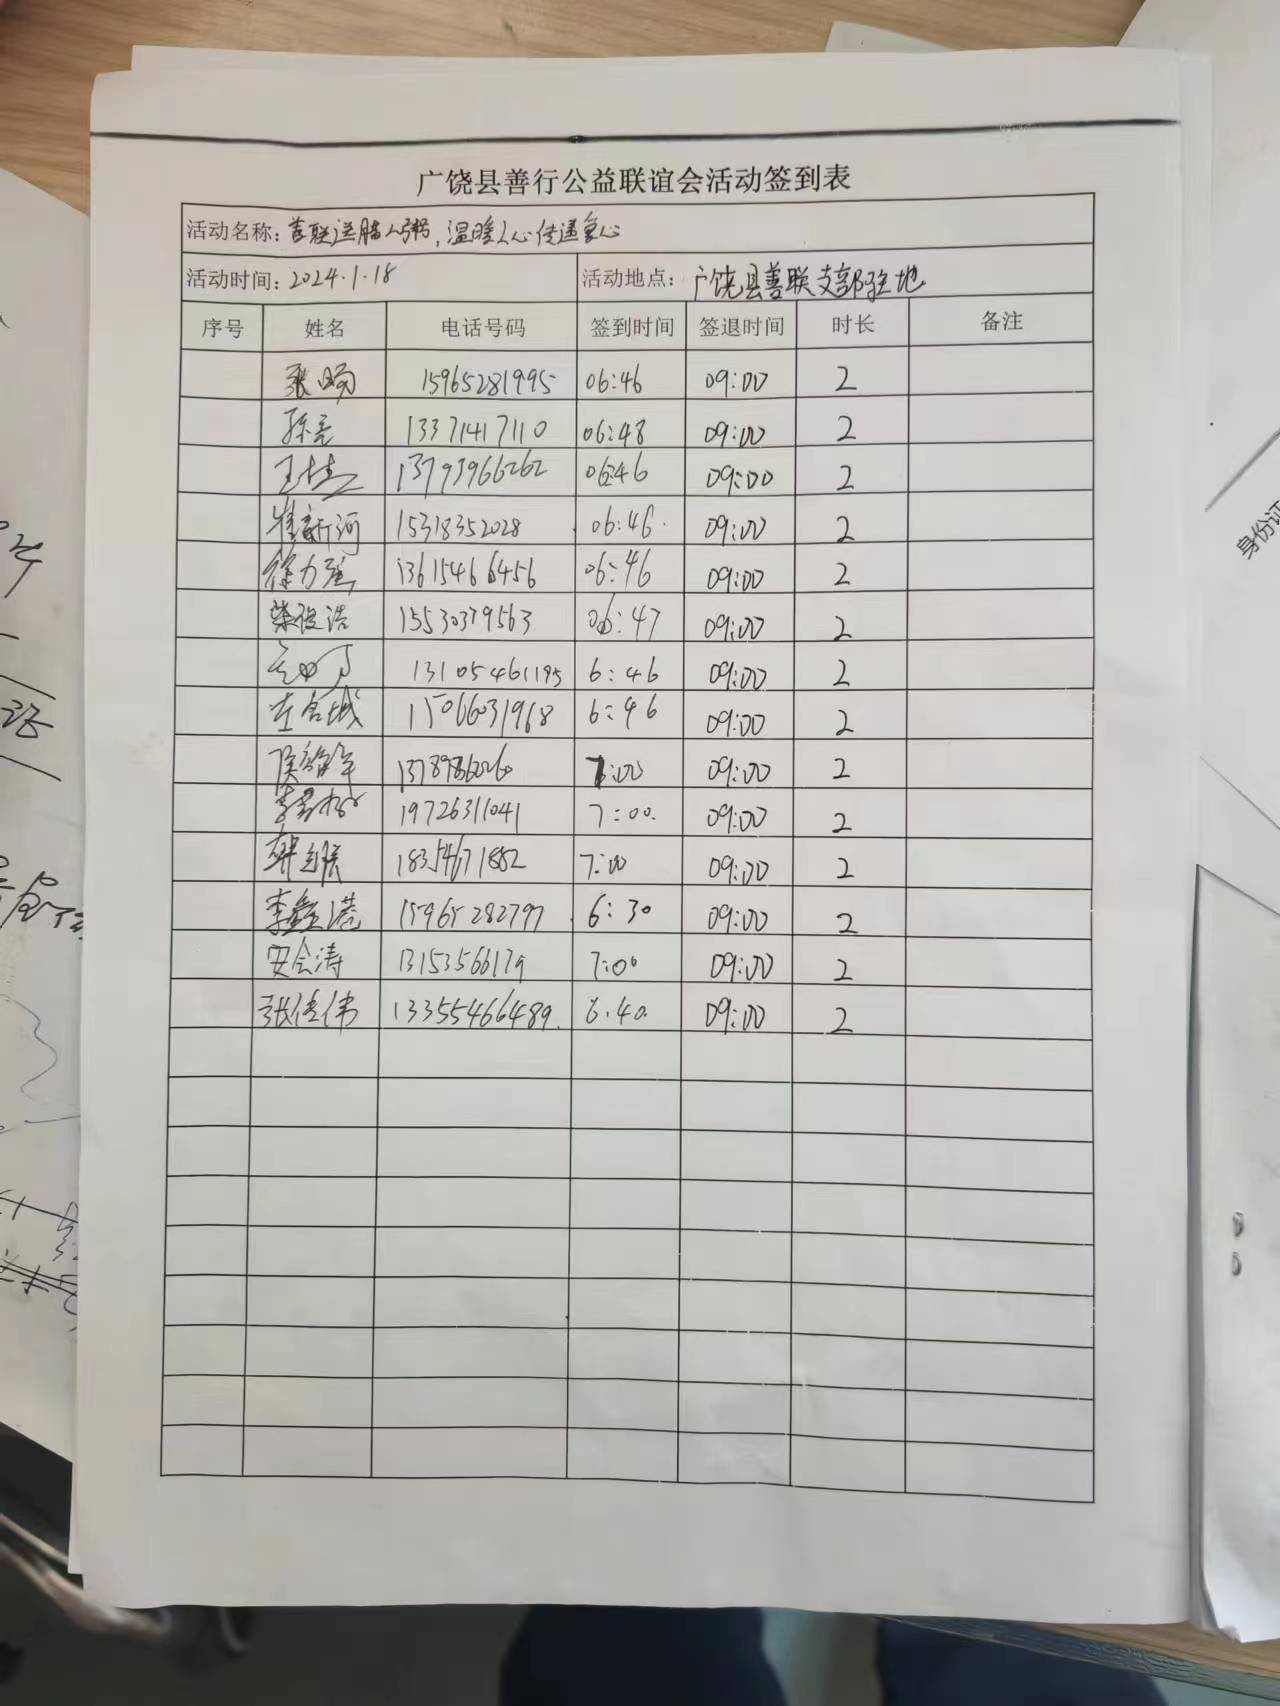 广饶县善行公益联谊会活动签到表
活动名称: 善联送腊八粥,温暖人心传递爱心
活动时间: 2024.1.18 活动地点: 广饶县善联支部驻地
序号 姓名 电话号码 签到时间 签退时间 时长 备注
张旸 15965281995 06:46 09:00 2
孙亮 13371417110 06:48 09:00 2
王 13793966262 06:46 09:00 2
崔新河 15318352028 06:46 09:00 2
徐力强 13615466456 06:46 09:00 2
荣俊浩 15530379563 06:47 09:00 2
13105461195 6:46 09:00 2
李合城 15066031968 6:46 09:00 2
7:00 09:00 2
李 19726311041 7:00 09:00 2
韩 18354671882 7:00 09:00 2
李鑫港 15965282797 6:30 09:00 2
安会涛 13153566179 7:00 09:00 2
张佳伟 13355466489 6.40 09:00 2
身份证